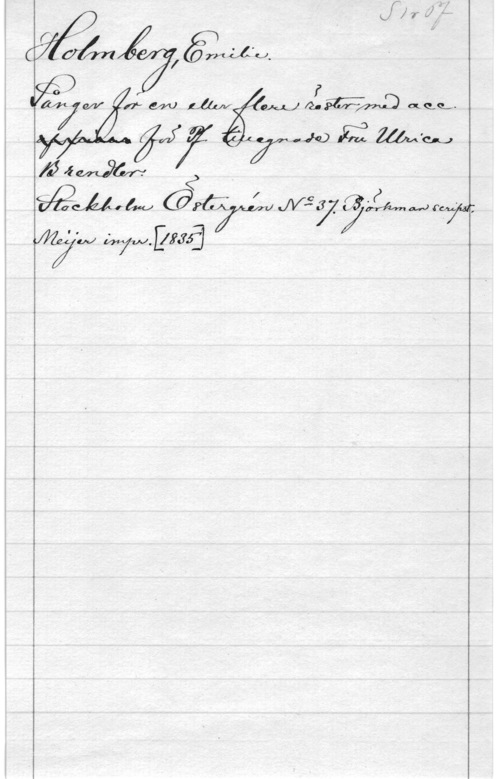 S1r 07
Holmberg, Emilie.
Sånger för en eller flere röster, med acc.
för Pf. tillegnade Fru Ulrica
Brendler:
Stockholm Östergrén № 37. Björkman scripsit.
Meijer impr. [1835]